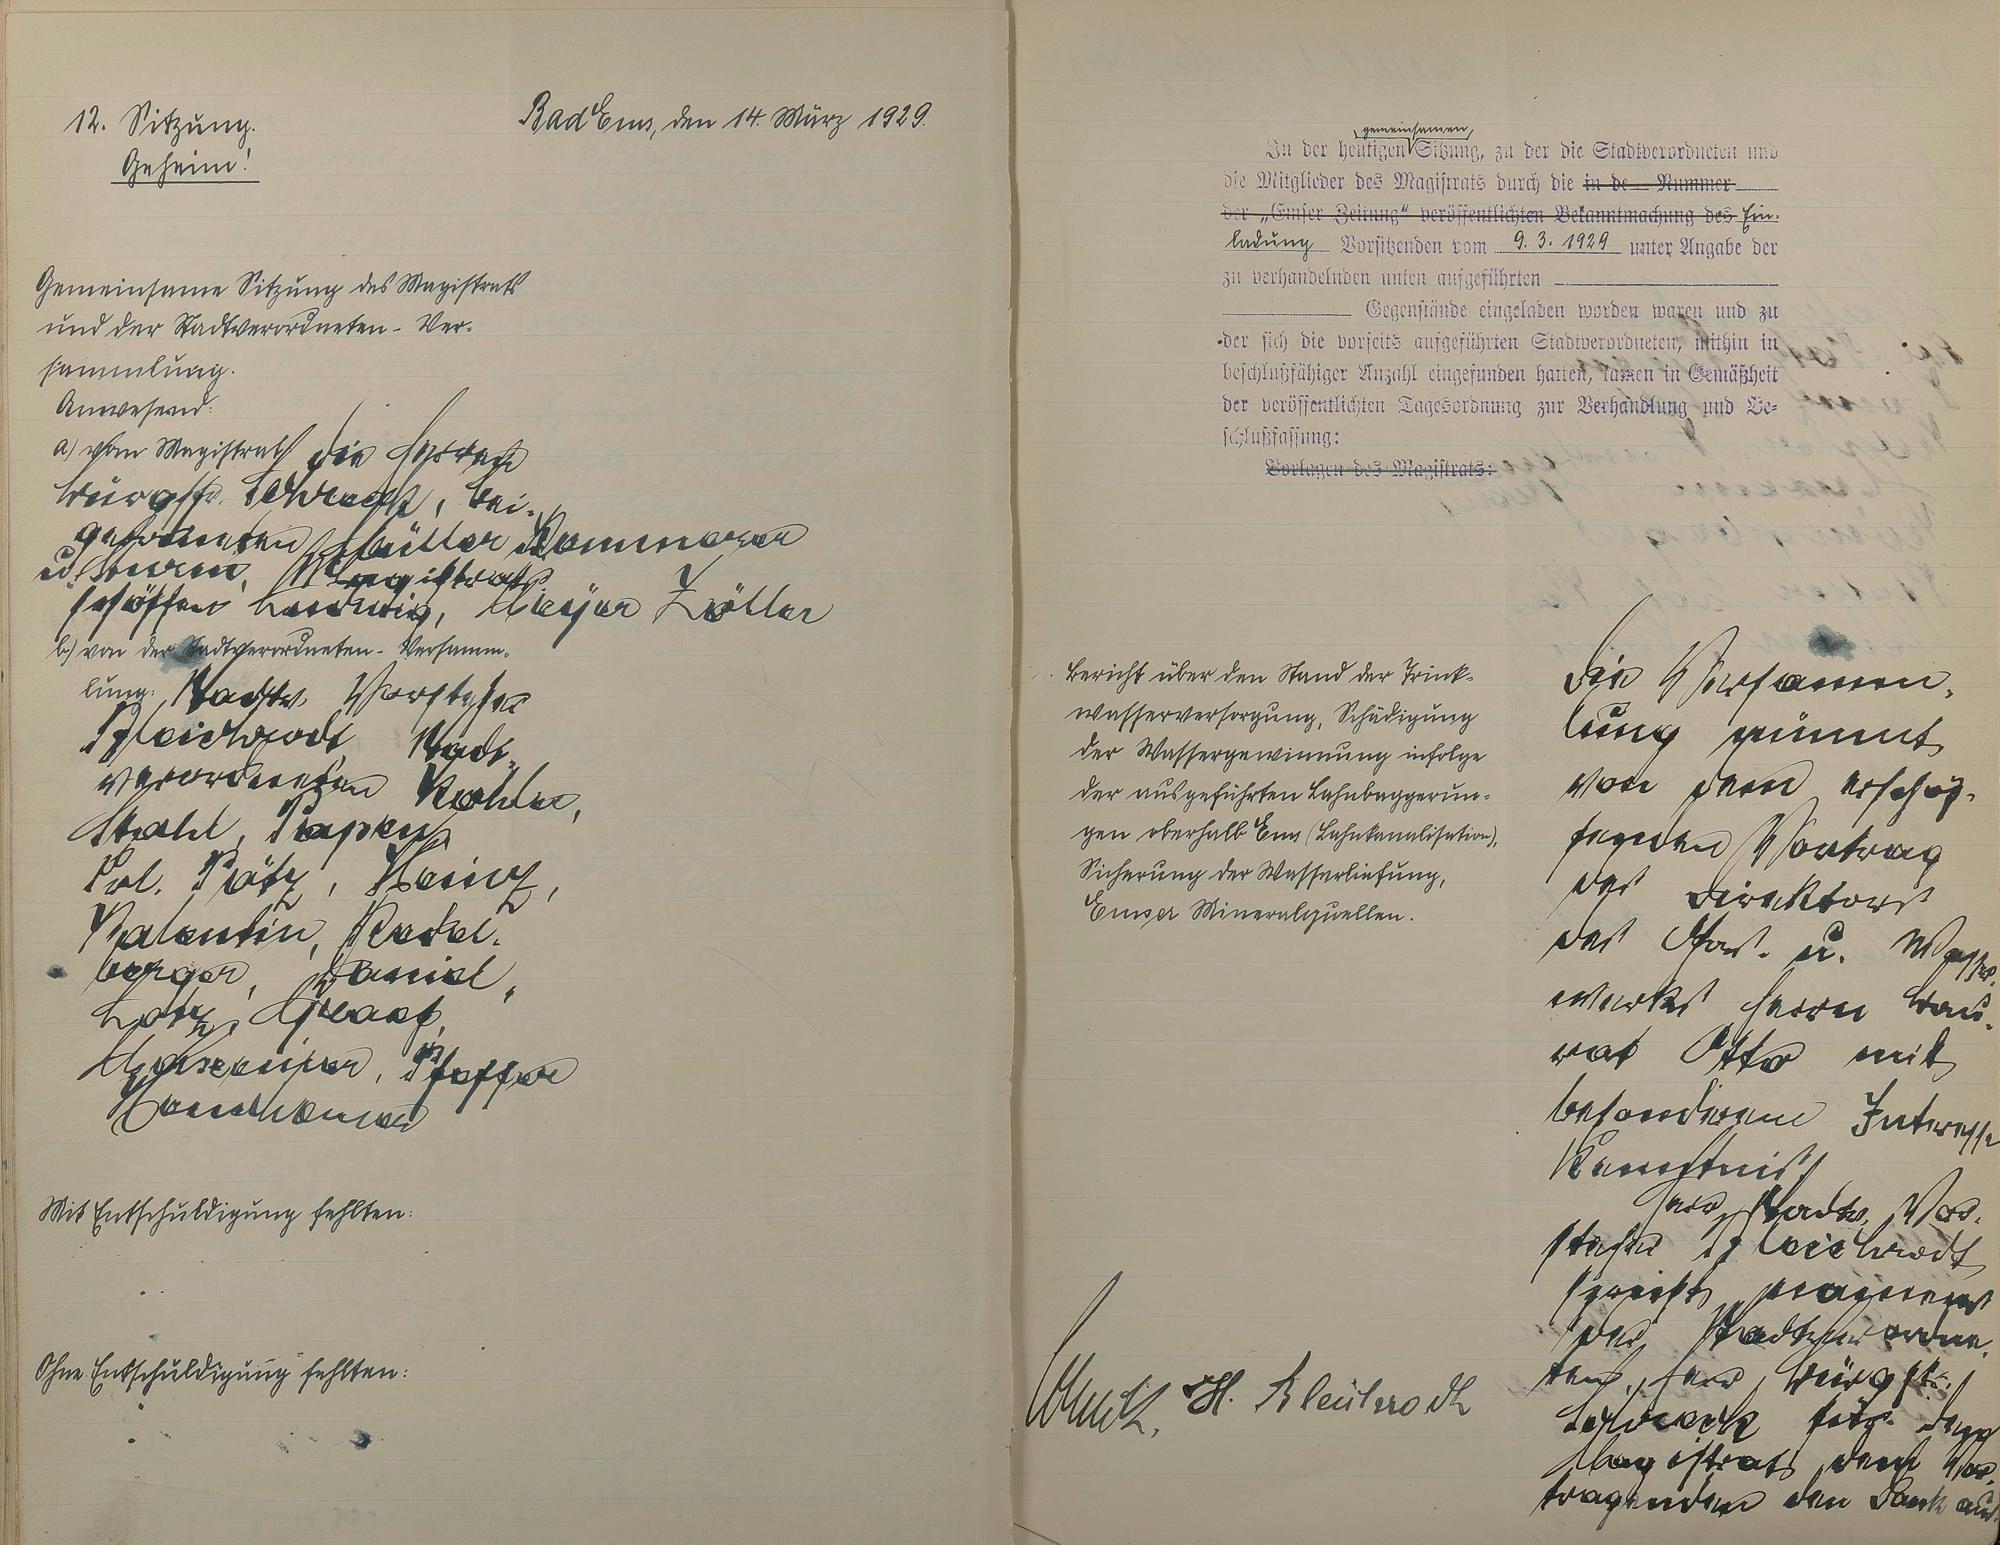 12. Sitzung.
Geheim!
Bad Ems, den 14. März 1929.
Gemeinsame Sitzung des Magistrats
und der Stadtverordneten-Ver-
sammlung.
Anwesend:
a) vom Magistrat die Herren
Bürgstr. Schreck, Bei-
geordneten Müller Kammerer
u. Magistrats
schöffen Ludwig, Meyer Zöller
b) von der Stadtverordneten-Versamm-
lung: Stadtv. Vorsteher
Bleichrodt Stadt-
verordneten Kohler,
Stahl, Papen,
Pötz, Heinz,
Valentin, Reckel-
berger, Daniel,
Lotz, Graaf,
Pfeffer
Mit Entschuldigung fehlten:
Ohne Entschuldigung fehlten:
gemeinsamen
In der heutigen Sitzung, zu der die Stadtverordneten und
die Mitglieder des Magistrats durch die in de Nummer
der „Emser Zeitung“ veröffentlichten Bekanntmachung des Ein-
ladung Vorsitzenden vom 9. 3. 1929 unter Angabe der
zu verhandelnden unten aufgeführten
Gegenstände eingeladen worden waren und zu
der sich die vorseits aufgeführten Stadtverordneten, mithin in
beschlußfähiger Anzahl eingefunden hatten, kamen in Gemäßheit
der veröffentlichten Tagesordnung zur Verhandlung und Be-
schlußfassung:
Vorlagen des Magistrats:
Bericht über den Stand der Trink-
wasserversorgung, Schädigung
der Wassergewinnung infolge
der ausgeführten Lahnbaggerun-
gen oberhalb Ems (Lahnkanalisation),
Sicherung der Wasserlieferung,
Emser Mineralquellen.
Die Versamm-
lung nimmt
von dem erschöp-
fenden Vortrag
des Direktors
des Gas- u. Wasser-
werks Herrn Bau-
rat Otto mit
besonderem Interesse
Kenntnis.
Herr Stadtv. Vor-
steher Bleichrodt
spricht namens
der Stadtverordne-
ten, Herr Bürgstr.
Schreck für den
Magistrat dem Vor-
tragenden den Dank aus.
Schreck. H. Bleichrodt